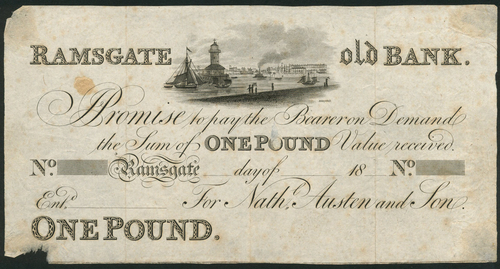 RAMSGATE old BANK.
I Promise to pay the Bearer on Demand
the Sum of ONE POUND Value received.
No. Ramsgate day of 18 No.
Entd. For Nathl. Austen and Son.
ONE POUND.